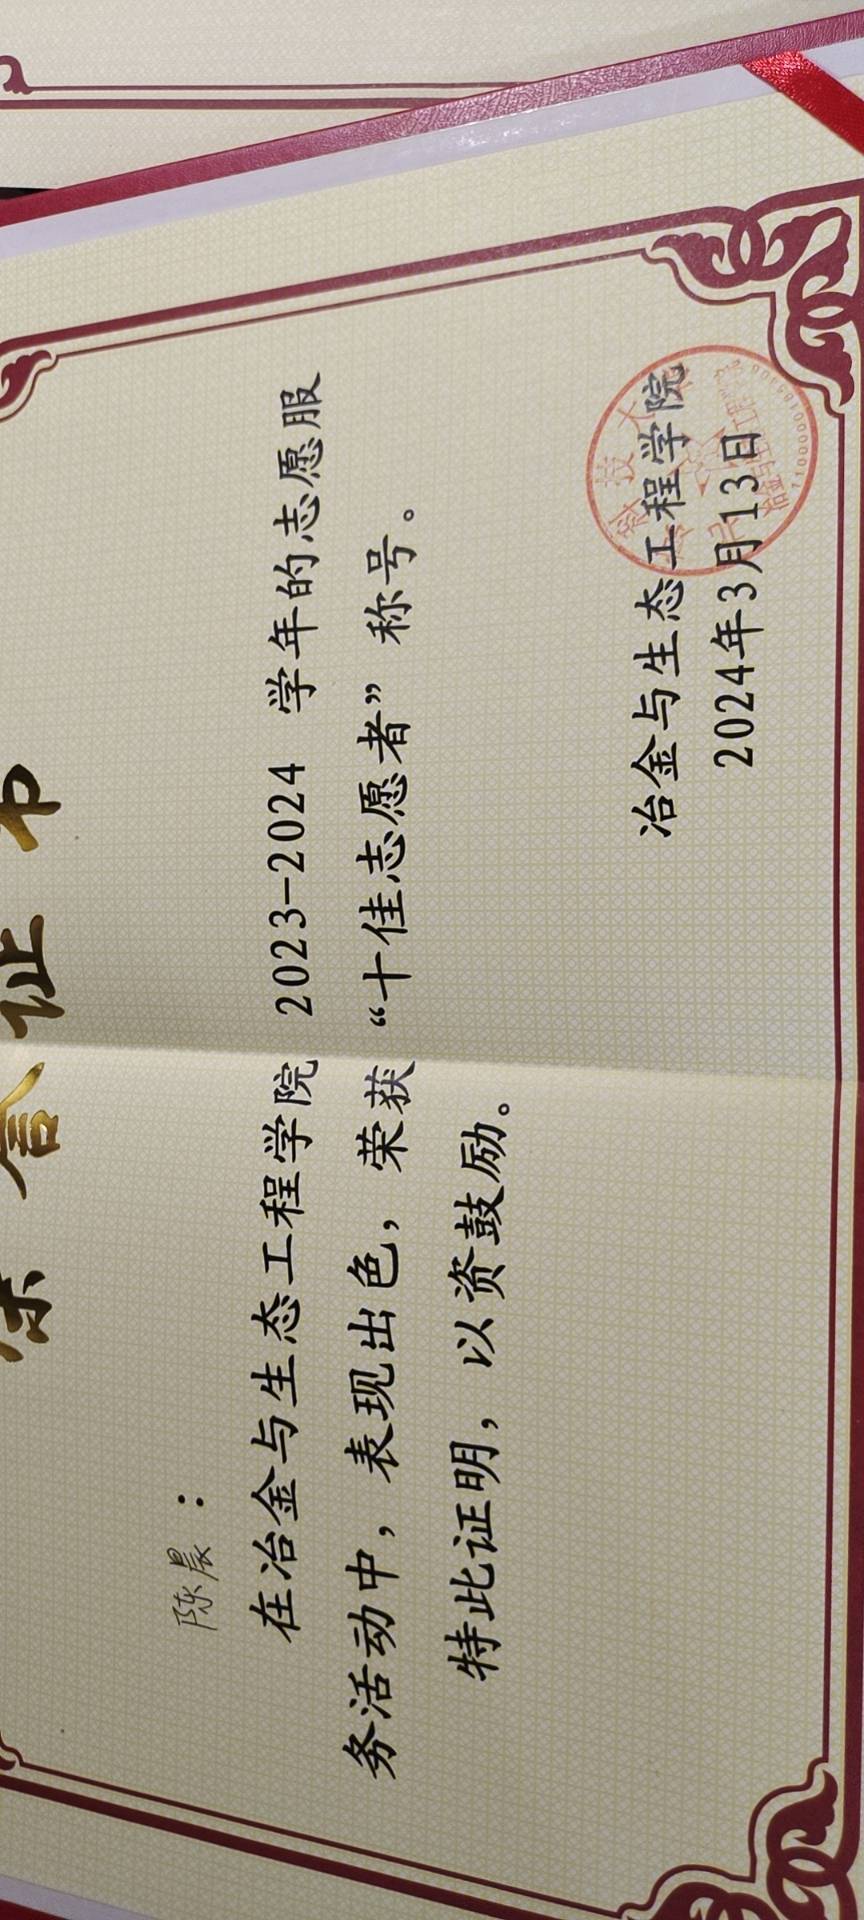 荣誉证书
陈晨：
在冶金与生态工程学院 2023-2024 学年的志愿服
务活动中，表现出色，荣获“十佳志愿者”称号。
特此证明，以资鼓励。
冶金与生态工程学院
2024年3月13日